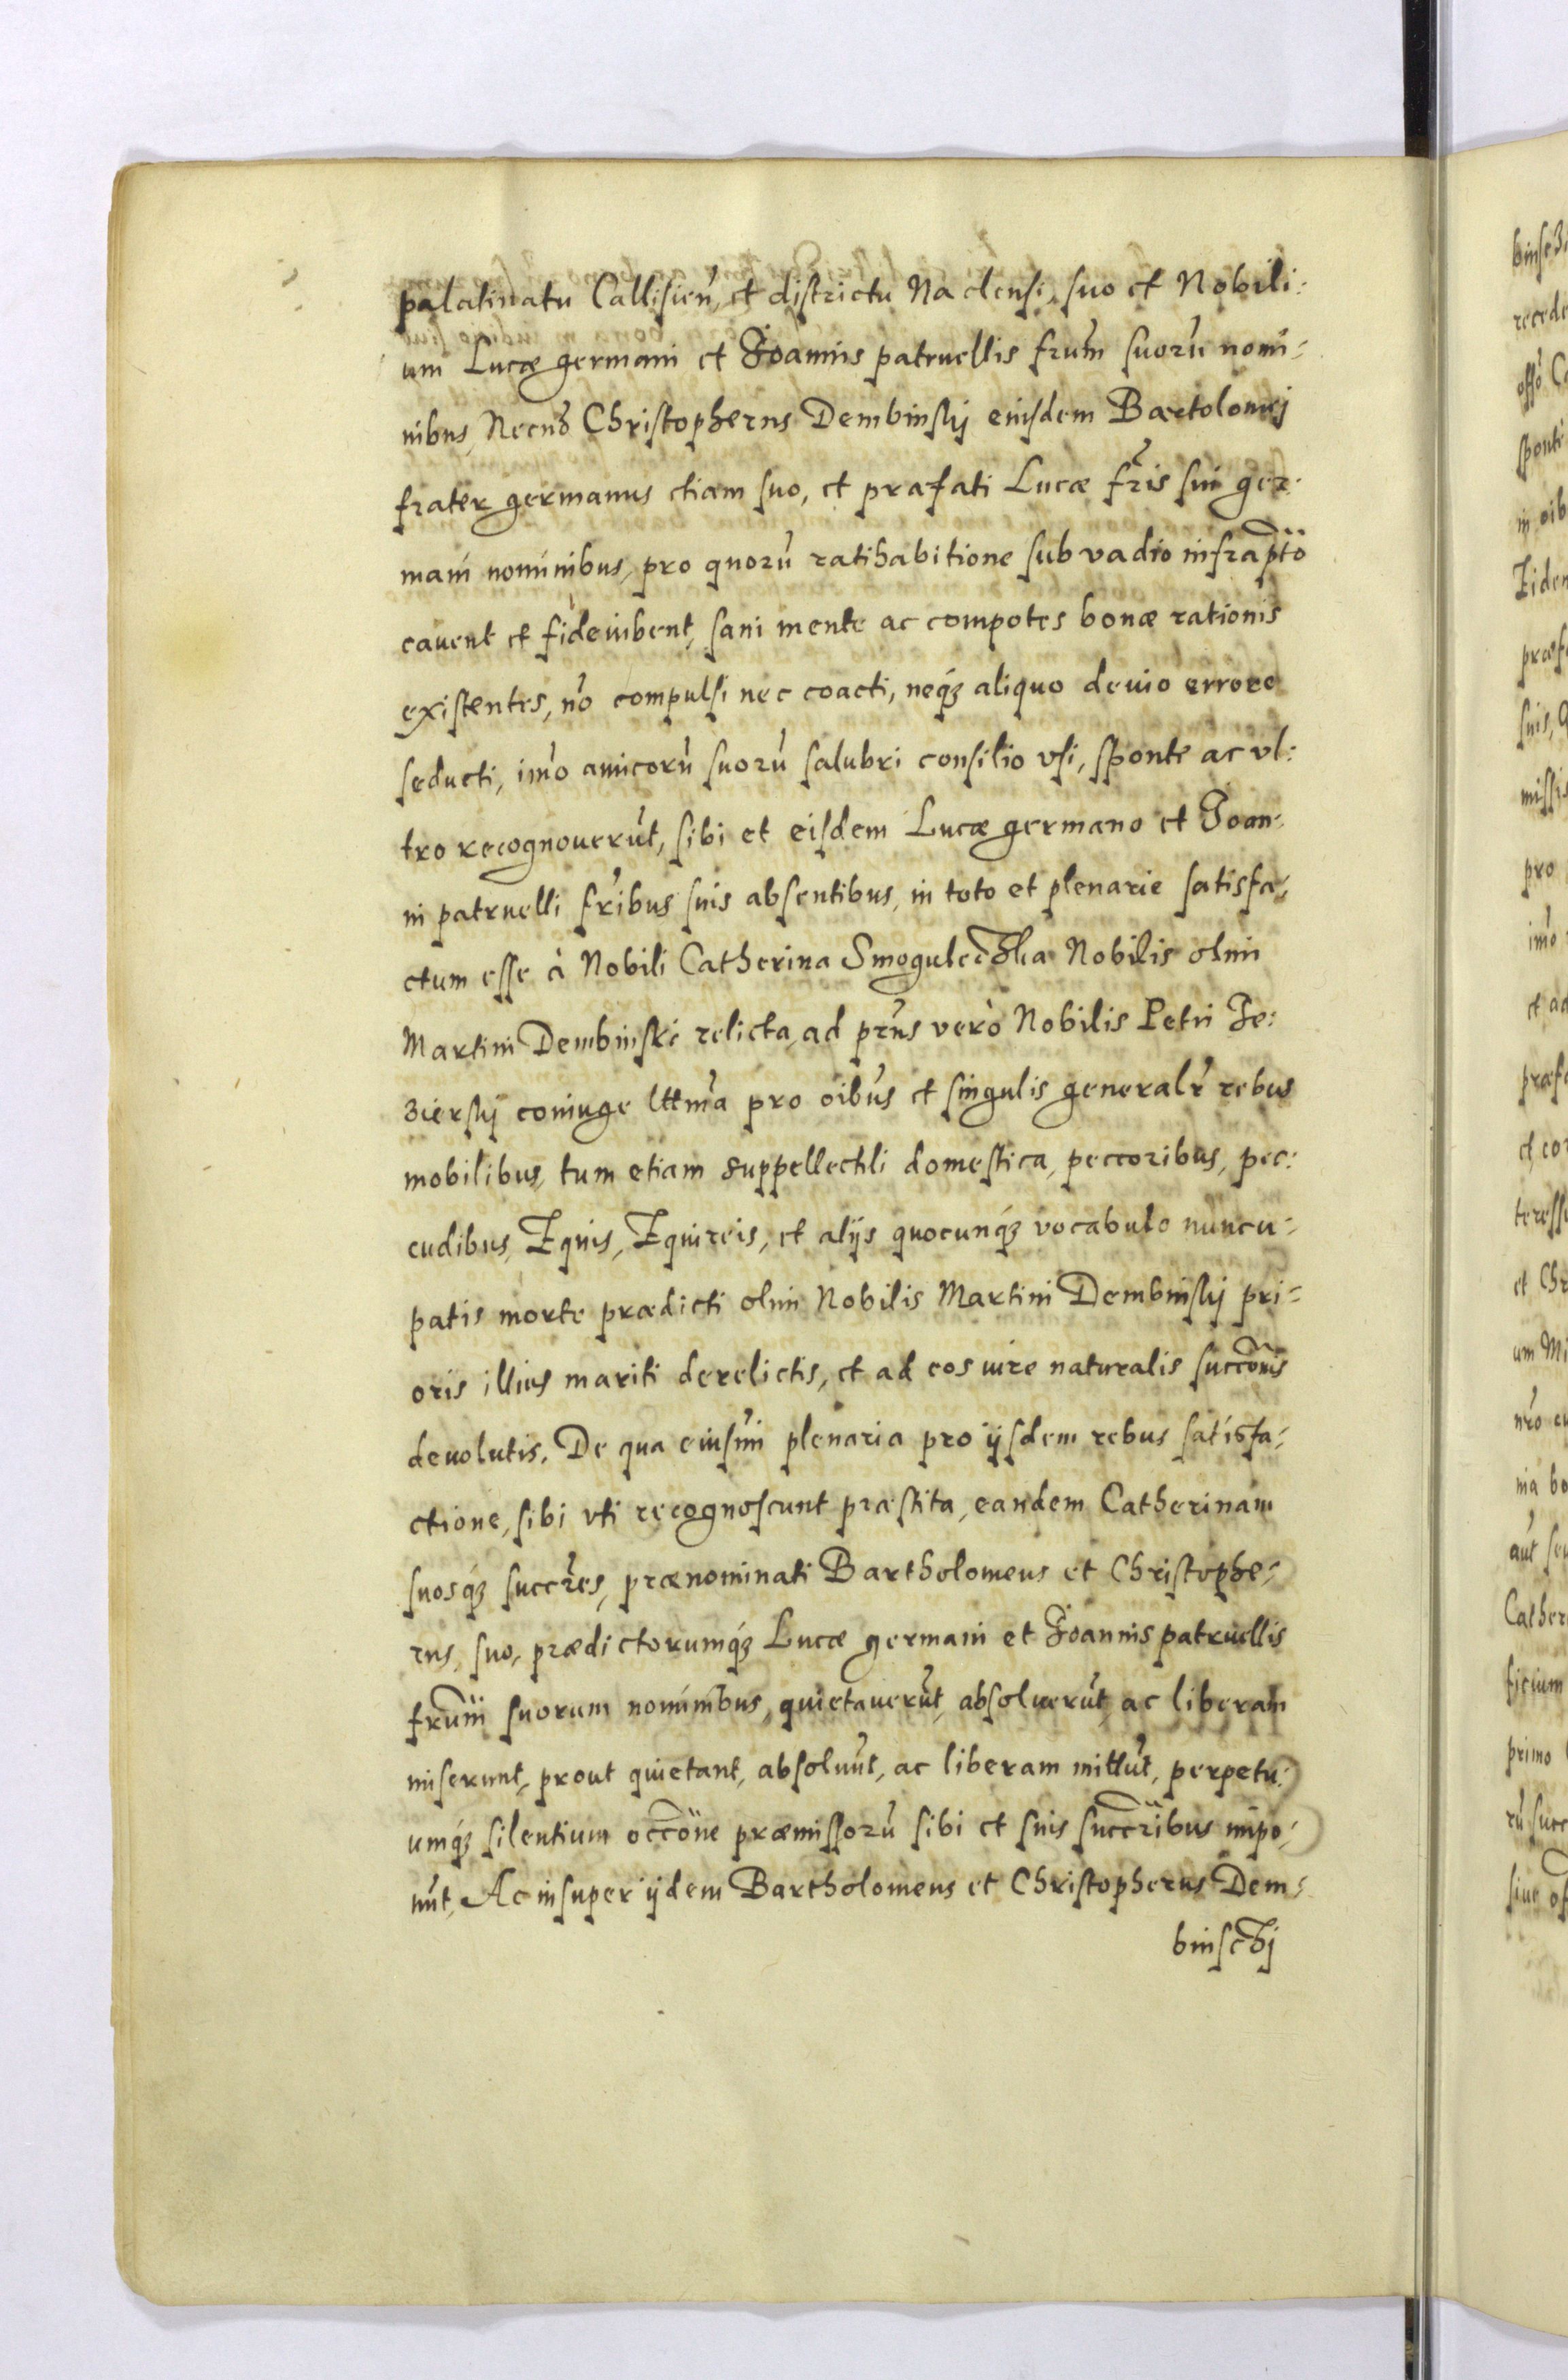 palatinatu Callisień, et districtu Naclensi, suo et Nobili:
um Lucæ germani et Joannis patruellis frũm suorũ nomi-
nibus, Necnõ Christopherus Dembinskj eiusdem Bartolomej
frater germanus etiam suo, et præfati Lucæ fr̃is sui ger-
mani nominibus, pro quorũ ratihabitione sub vadio infrap̃tõ
cauent et fideiubent, sani mente ac compotes bonæ rationis
existentes, nõ compulsi nec coacti, neq́ꝫ aliquo deuio errore
seducti, imò amicorũ suorũ salubri consilio vsi, sponte ac vl:
tro recognouerũt, sibi et eisdem Lucæ germano et Joan-
ni patruelli fr̃ibus suis absentibus, in toto et plenarie satisfa-
ctum esse à Nobili Catherina Smogulecka Nobilis olim
Martini Dembinski relicta, ad pr̃ns verò Nobilis Petri Je:
zierskj coniuge lttm̃a pro oĩbus et singulis generalr̃ rebus
mobilibus, tum etiam suppellectili domestica, peccoribus, pec:
cudibus, Equis, Equireis, et alijs quocunq́ꝫ vocabulo nuncu-
patis morte prædicti olim Nobilis Martini Dembinskj pri-
oris illius mariti derelictis, et ad eos iure naturalis succõnis
deuolutis. De qua eiusm̃i plenaria pro ijsdem rebus satisfa-
ctione, sibi vti recognoscunt præstita, eandem Catherinam
suosq́ꝫ succr̃es, prænominati Bartholomeus et Christophe-
rus, suo, prædictorumq́ꝫ Lucæ germani et Joannis patruellis
frũm suorum nominibus, quietauerũt, absoluerũt, ac liberam
miserunt, prout quietant, absoluũt, ac liberam mittũt, perpetu:
umq́ꝫ silentium occõne præmissorũ sibi et suis succr̃ibus impo-
nũt, Ac insuper ijdem Bartholomeus et Christopherus Dem-
binsckj